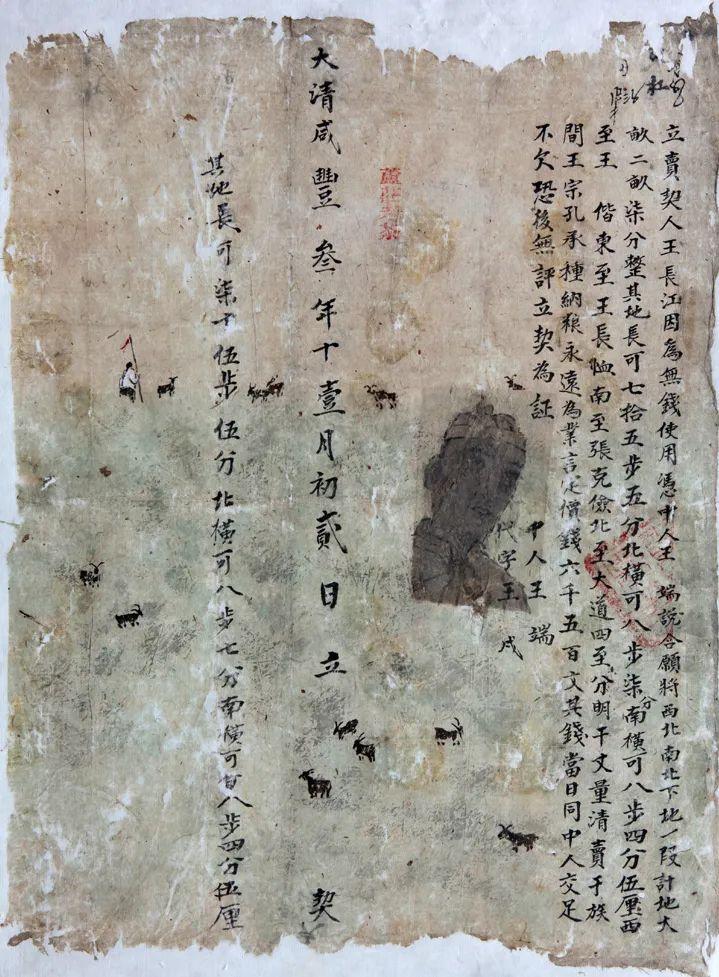 立賣契人王長江因為無錢使用憑中人王 端說合願將西北南北下地一段計地大
畝二畝柒分整其地長可七拾五步五分北橫可八步柒分南橫可八步四分伍厘西
至王 偕東至王長恤南至張克儉北至大道四至分明干丈量清賣于族
間王宗孔承種納粮永遠為業言定價錢六千五百文其錢當日同中人交足
不欠恐後無評立契為証
中人王 端
代字王
大清咸豐叁年十壹月初貳日立 契
其地長可柒十伍步伍分北橫可八步七分南橫可八步四分伍厘